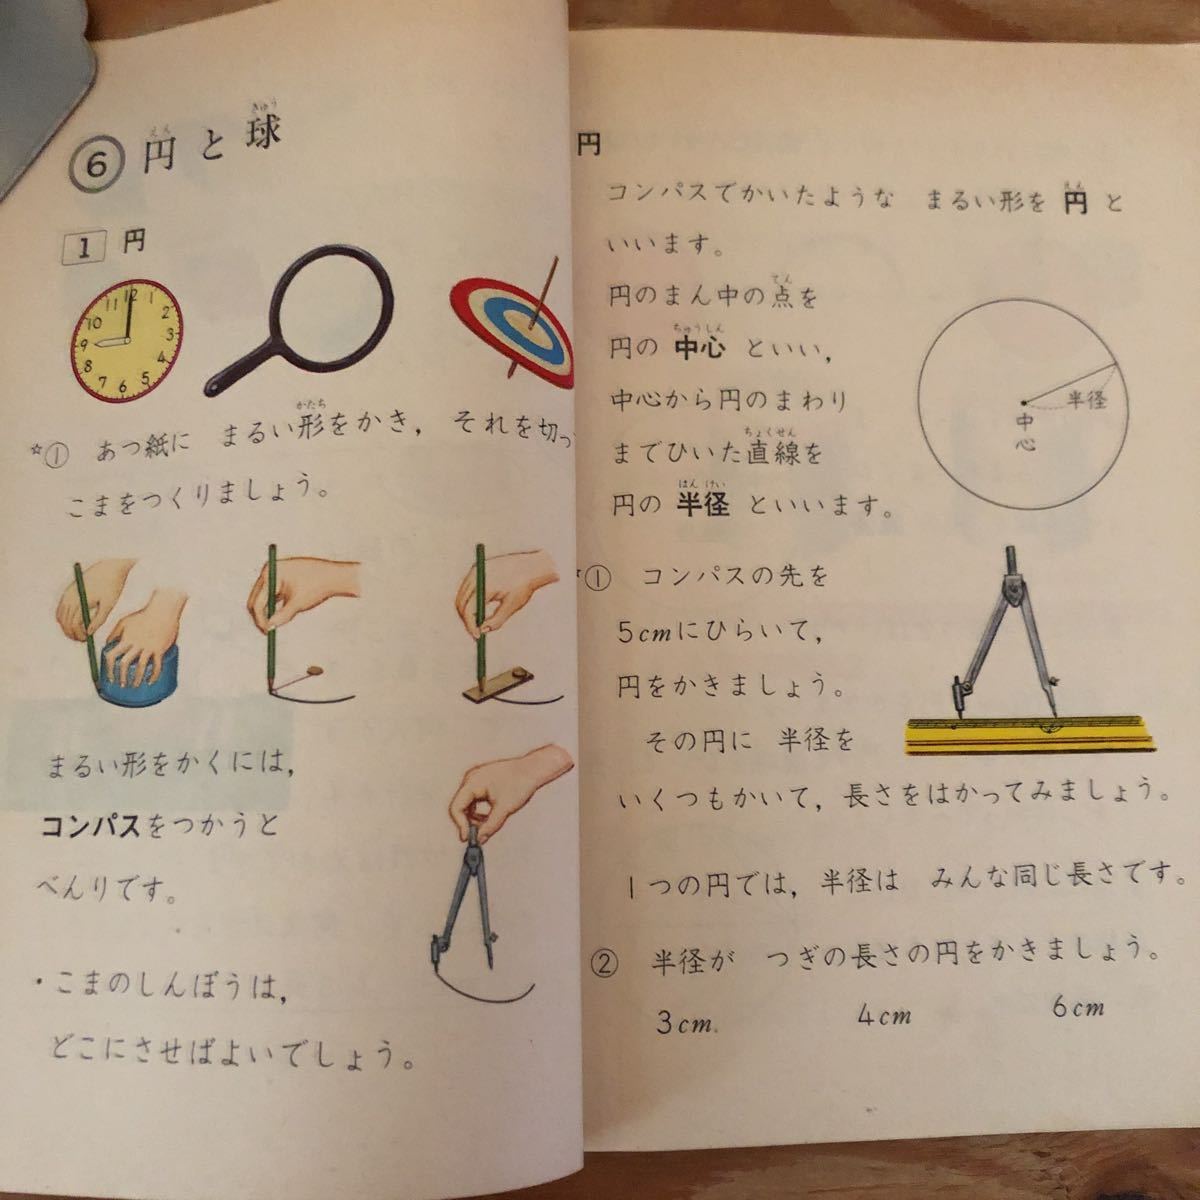 ⑥ 円と球
1 円
11 12 1
10 2
9 3
8 4
7 6 5
☆① あつ紙に まるい形をかき， それを切っ
こまをつくりましょう。
まるい形をかくには，
コンパスをつかうと
べんりです。
・こまのしんぼうは，
どこにさせばよいでしょう。
円
コンパスでかいたような まるい形を 円 と
いいます。
円のまん中の点を
円の 中心 といい，
中心から円のまわり
までひいた直線を
円の 半径 といいます。
半径
中心
☆① コンパスの先を
5cmにひらいて，
円をかきましょう。
その円に 半径を
いくつもかいて，長さをはかってみましょう。
1つの円では，半径は みんな同じ長さです。
② 半径が つぎの長さの円をかきましょう。
3cm 4cm 6cm